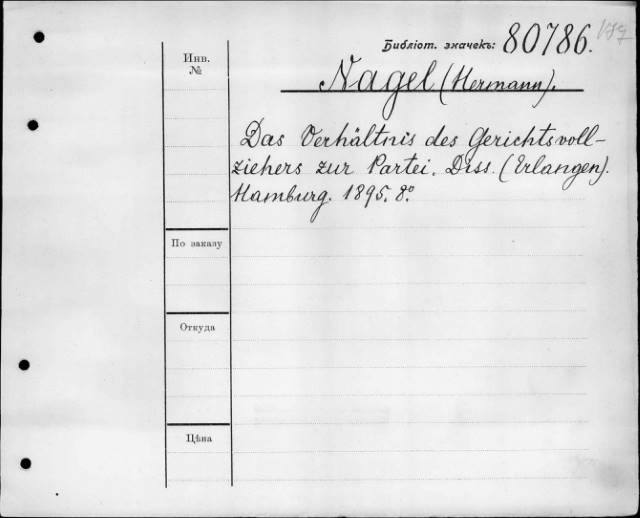 Библіот. значекъ: 80786.
Инв.
№
Nagel (Hermann).
Das Verhältnis des Gerichtsvoll-
ziehers zur Partei. Diss. (Erlangen).
Hamburg. 1895. 8°.
По заказу
Откуда
Цѣна